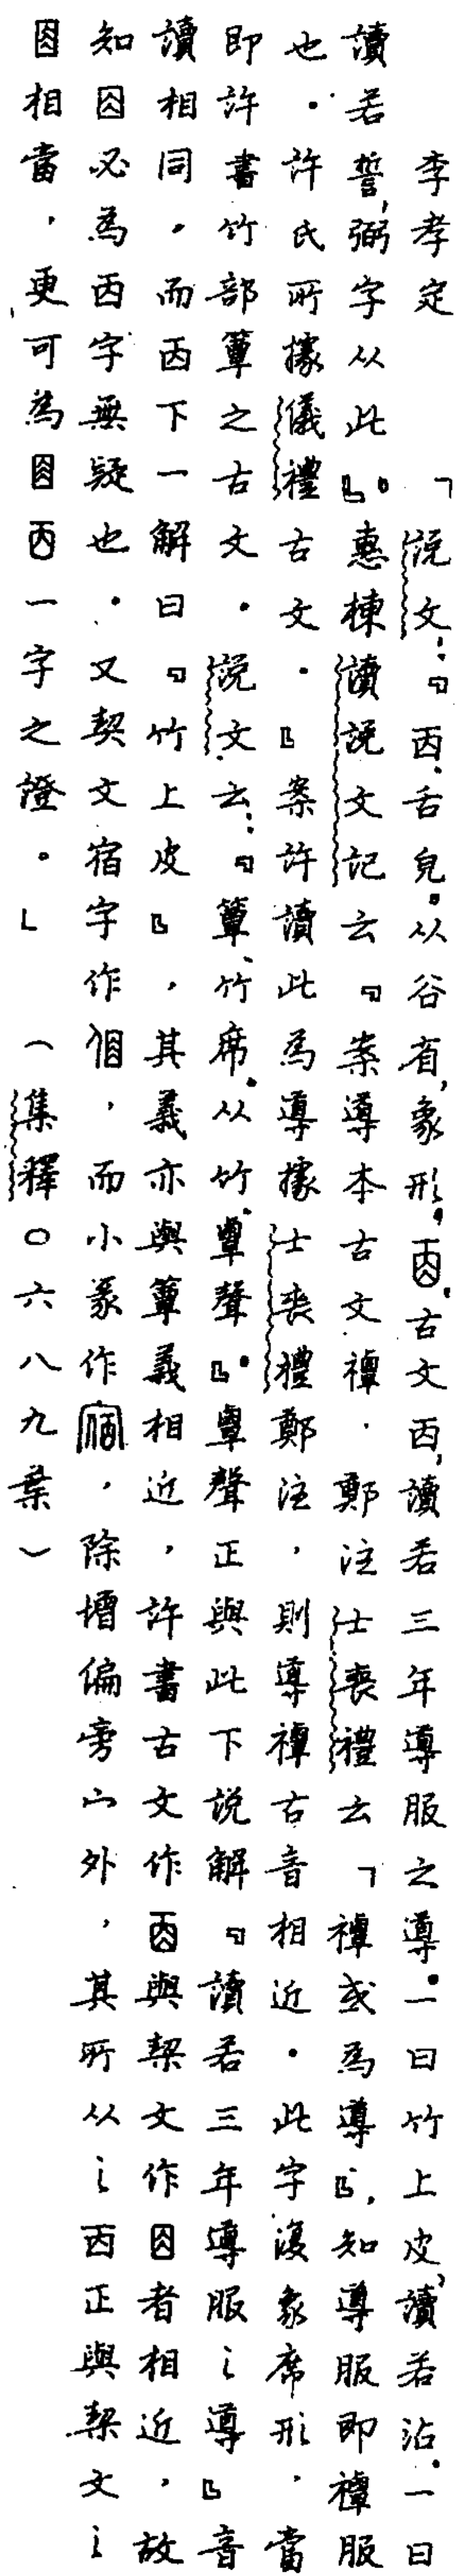 李孝定　「說文：『㐁、舌皃。从谷省，象形。𠱫、古文㐁，讀若三年導服之導。一曰竹上皮，讀若沾。一曰
讀若誓，弼字从此』。惠棟讀說文記云『案導本古文禫．鄭注士喪禮云「禫或為導』，知導服即禫服
也．許氏所據儀禮古文．』案許讀此為導據士喪禮鄭注，則導禫古音相近．此字復象席形，當
即許書竹部簟之古文．說文云：『簟、竹席。从竹覃聲』．覃聲正與此下說解『讀若三年導服之導』音
讀相同．而㐁下一解曰『竹上皮』，其義亦與簟義相近，許書古文作𠱫與栔文作囚者相近，故
知囚必為㐁字無疑也．又栔文宿字作佰，而小篆作宿，除增偏旁宀外，其所从之㐁正與栔文之
𠱫相當，更可為𠱫㐁一字之證。」（集釋〇六八九葉）